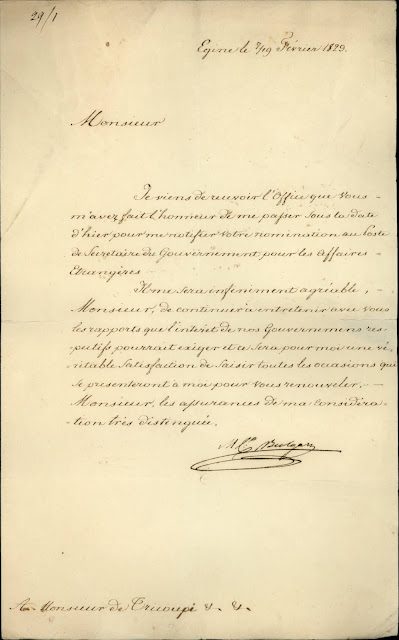 29/1
Egine le 7/19 Février 1829.
Monsieur
Je viens de recevoir l'Office que Vous
m'avez fait l'honneur de me passer sous la date
d'hier pour me notifier Votre nomination au poste
de Secretaire du Gouvernement pour les Affaires
Etrangères
Il me sera infiniment agréable,
Monsieur, de continuer à entretenir avec Vous
les rapports que l'interet de nos Gouvernemens res-
pectifs pourrait exiger et ce sera pour moi une vé-
ritable Satisfaction de saisir toutes les occasions qui
se présenteront à moi pour Vous renouveler,
Monsieur, les assurances de ma considéra-
tion très distinguée.
M C Bulgari
A Monsieur de Tricoupi &. &.